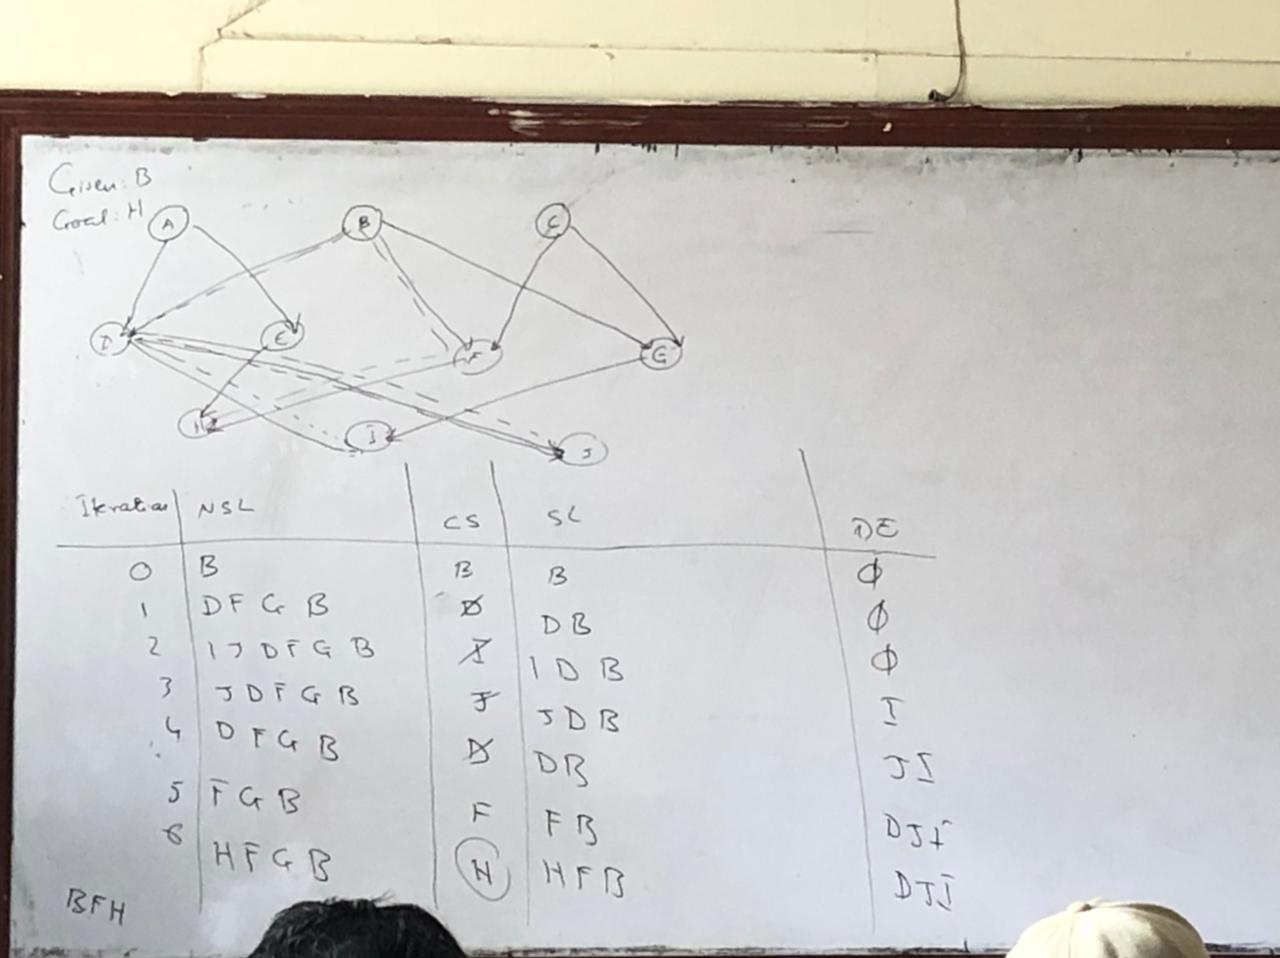 Given: B
Goal: H
A B C
D E F G
H I J
Iteration NSL CS SL DE
0 B B B Φ
1 D F G B D D B Φ
2 I J D F G B I I D B Φ
3 J D F G B J J D B I
4 D F G B D D B J I
5 F G B F F B D J I
6 H F G B H H F B D J I
B F H